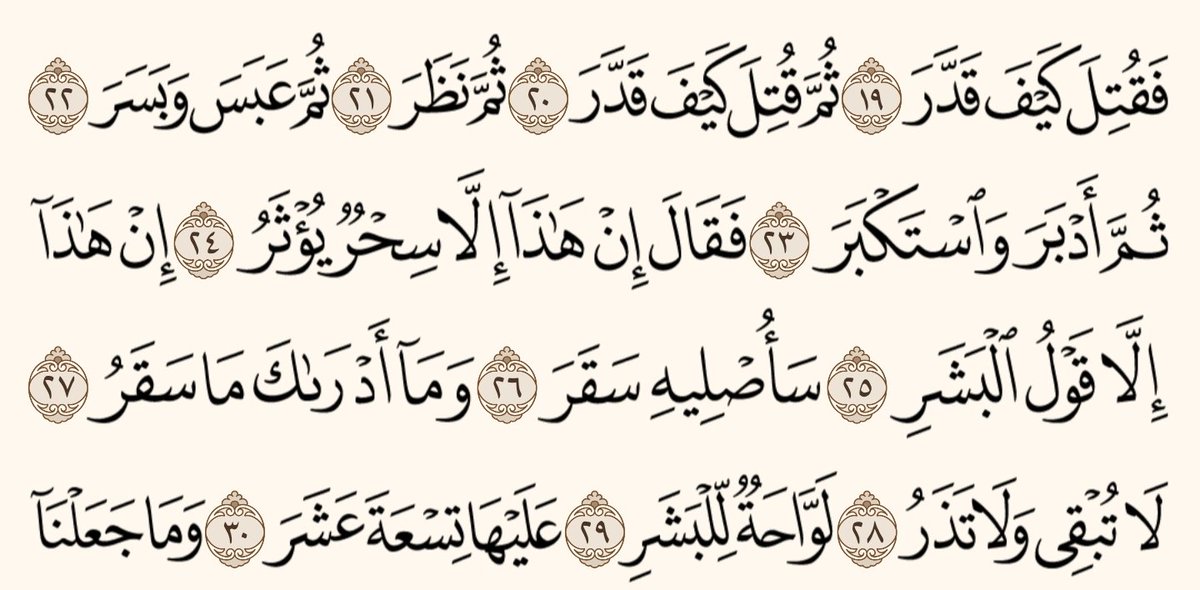 فَقُتِلَ كَيْفَ قَدَّرَ ١٩ ثُمَّ قُتِلَ كَيْفَ قَدَّرَ ٢٠ ثُمَّ نَظَرَ ٢١ ثُمَّ عَبَسَ وَبَسَرَ ٢٢
ثُمَّ أَدْبَرَ وَٱسْتَكْبَرَ ٢٣ فَقَالَ إِنْ هَٰذَآ إِلَّا سِحْرٌ يُؤْثَرُ ٢٤ إِنْ هَٰذَآ
إِلَّا قَوْلُ ٱلْبَشَرِ ٢٥ سَأُصْلِيهِ سَقَرَ ٢٦ وَمَآ أَدْرَىٰكَ مَا سَقَرُ ٢٧
لَا تُبْقِى وَلَا تَذَرُ ٢٨ لَوَّاحَةٌ لِّلْبَشَرِ ٢٩ عَلَيْهَا تِسْعَةَ عَشَرَ ٣٠ وَمَا جَعَلْنَآ